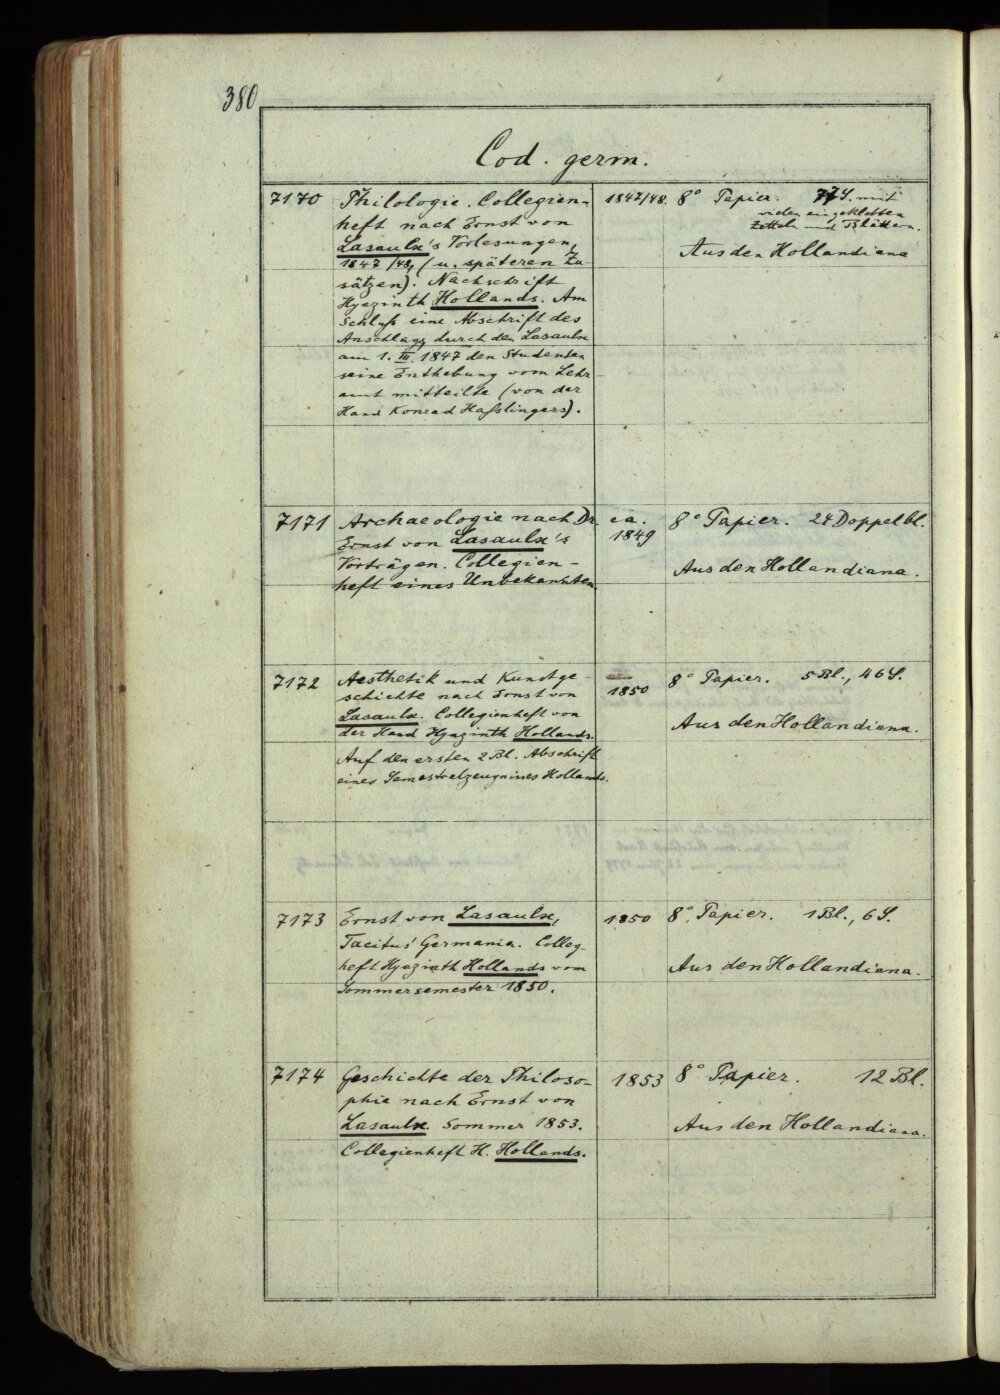 380
Cod. germ.
7170 Philologie. Collegien-
heft nach Ernst von
Lasaulx's Vorlesungen,
1847/48, (u. späteren Zu-
sätzen). Nachschrift
Hyazinth Hollands. Am
Schluß eine Abschrift des
Anschlags durch den Lasaulx
am 1. III. 1847 den Studenten
seine Enthebung vom Lehr-
amt mitteilte (von der
Hand Konrad Haßlingers).
1847/48. 8° Papier. S. mit
vielen eingeklebten
Zetteln und Blättern.
Aus den Hollandiana
7171 Archaeologie nach Dr.
Ernst von Lasaulx's
Vorträgen. Collegien-
heft eines Unbekannten.
ca.
1849
8° Papier. 24 Doppelbl.
Aus den Hollandiana.
7172 Aesthetik und Kunstge-
schichte nach Ernst von
Lasaulx. Collegienheft von
der Hand Hyazinth Hollands.
Auf den ersten 2 Bl. Abschrift
eines Semestralzeugnisses Hollands.
1850
8° Papier. 5 Bl., 46 S.
Aus den Hollandiana.
7173 Ernst von Lasaulx,
Tacitus' Germania. Colleg-
heft Hyazinth Hollands vom
Sommersemester 1850.
1850 8° Papier. 1 Bl., 6 S.
Aus den Hollandiana.
7174 Geschichte der Philoso-
phie nach Ernst von
Lasaulx. Sommer 1853.
Collegienheft H. Hollands.
1853 8° Papier. 12 Bl.
Aus den Hollandiana.